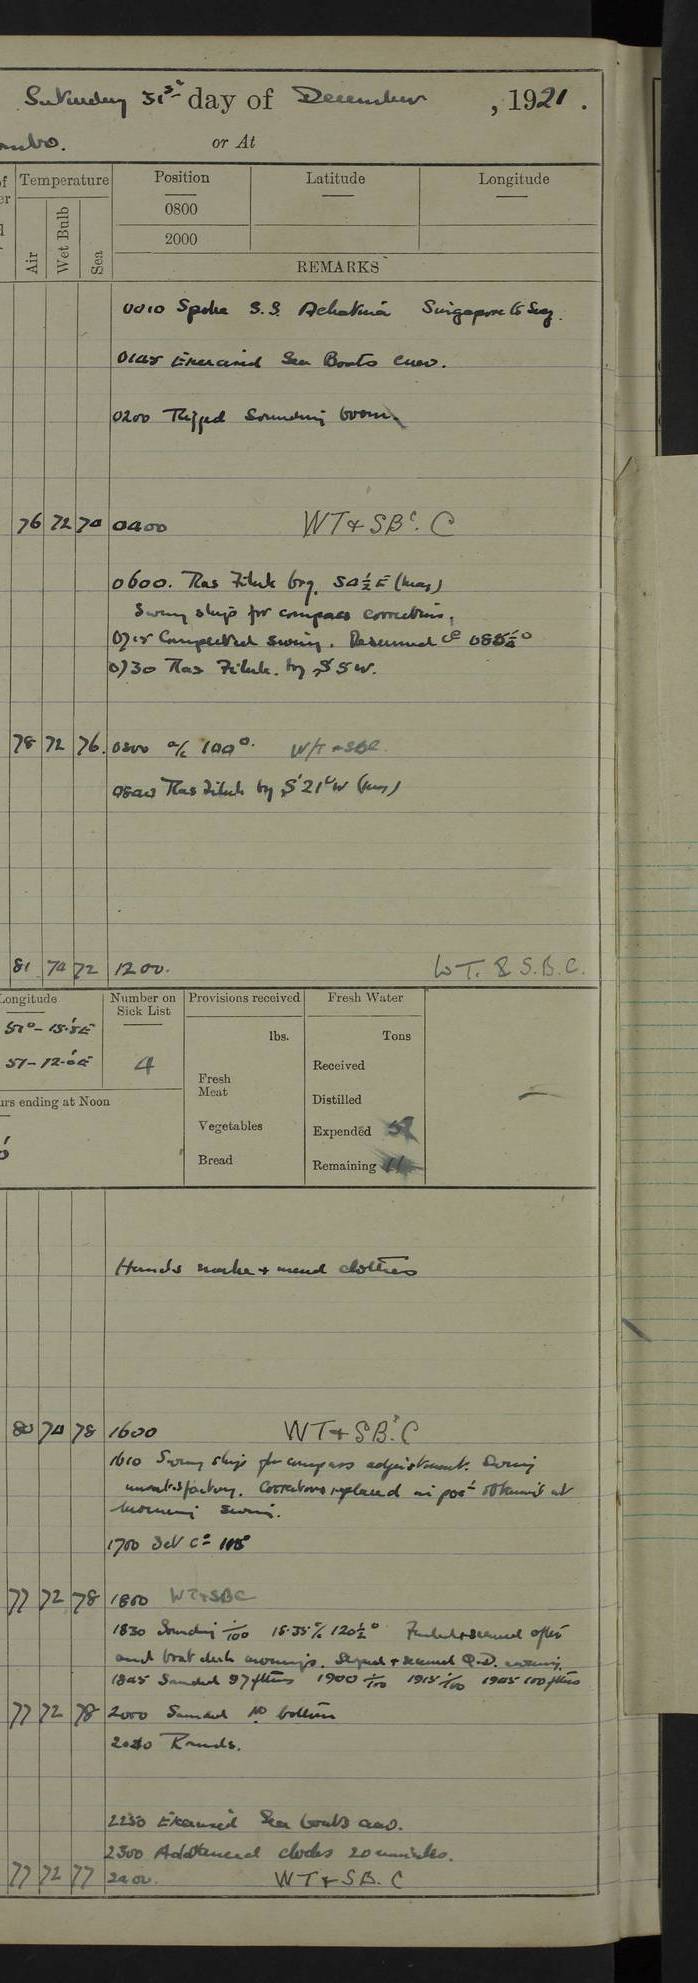 Saturday 31st day of December, 1921.
or At
Temperature
Position
Latitude
Longitude
0800
2000
Air
Wet Bulb
Sea
REMARKS
0010 Spoke S.S. Singapore to Suez.
0145 Exercised Sea Boats crew.
0200 Rigged Sounding boom.
76 72 74 0400 WT & SBs. C
0600. Ras Filuk brg. S4½E (mag)
Swung ship for compass correction.
0715 Completed swing. Resumed Co
0730 Ras Filuk. brg S5W.
78 72 76. 0800 a/c 100°. W/T & SBC
0840 Ras Filuk brg S21W (mag)
81 74 72 1200. W.T. & S.B.C.
Longitude
51°-15.5E
51-12.0E
Number on
Sick List
4
Provisions received
lbs.
Fresh
Meat
Vegetables
Bread
Fresh Water
Tons
Received
Distilled
Expended
Remaining
urs ending at Noon
Hands make & mend clothes
80 74 78 1600 WT & SBs. C
1610 Swung ship for compass adjustment. Swing
unsatisfactory. Correctors replaced in posn obtained at
morning swing.
1700 Set Co
77 72 78 1800 WT & SBC
1830 Sounding 18.35 a/c 120½° Furled & secured after
and boat deck awnings. Sloped & secured Q.D. awning.
1845 Sounded 97 fthms 1900 1915 1945 100 fthms
77 72 78 2000 Sounded No bottom
2040 Rounds.
2230 Exercised Sea boats crew.
2300 Advanced clocks 20 minutes.
77 72 77 2400. WT & SB. C